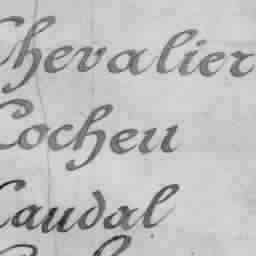 Chevalier
Cocheu
Caudal